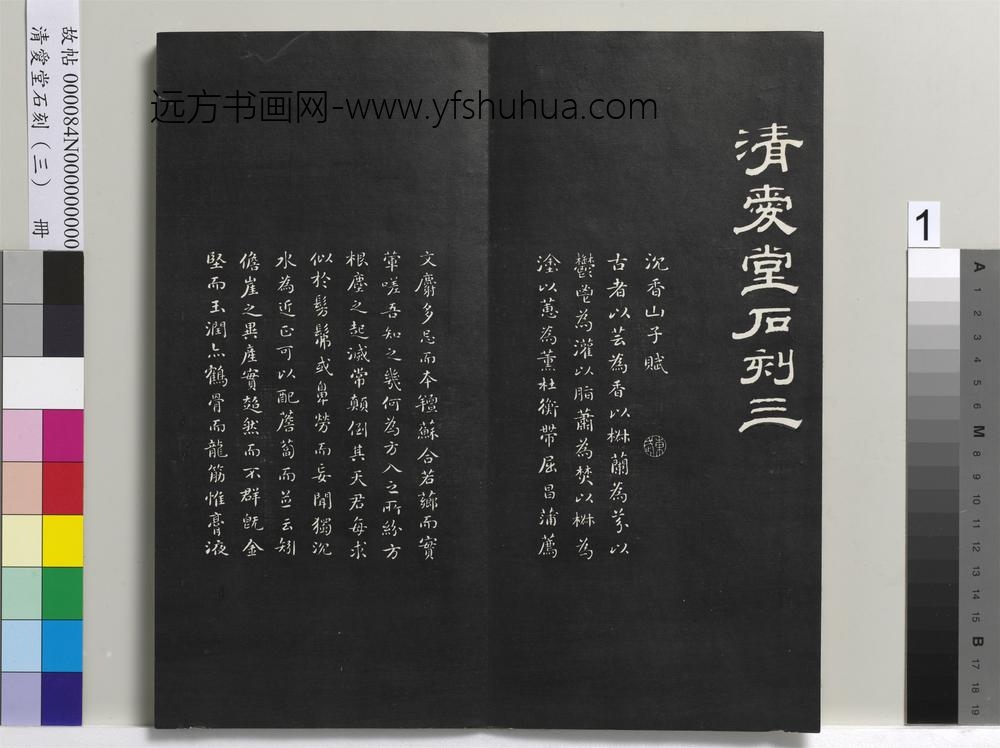 故帖 000084N000000000
清愛堂石刻（三） 冊
远方书画网-www.yfshuhua.com
清愛堂石刻三
沉香山子賦
古者以芸為香以椒蘭為芬以
鬱鬯為灌以脂蕭為焚以椒為
塗以蕙為薰杜衡帶屈昌蒲薦
文麝多忌而本羶蘇合若薌而實
葷嗟吾知之幾何為六入之所紛方
根塵之起滅常顛倒其天君每求
似於髣髴或鼻勞而妄聞獨沉
水為近正可以配薝蔔而並云矧
儋崖之異產實超然而不群既金
堅而玉潤亦鶴骨而龍筋惟膏液
1
A
1
2
3
4
5
6
M
8
9
10
11
12
13
14
15
B
17
18
19